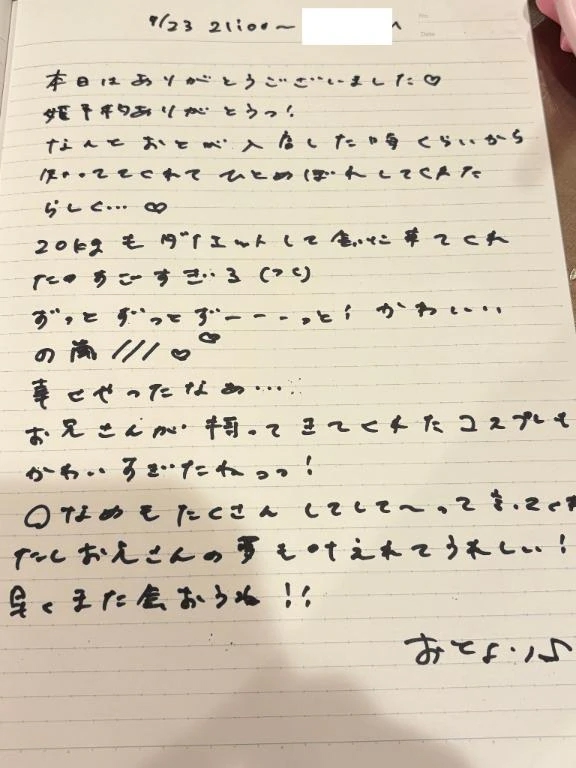 9/23 21:00〜
No.
Date
本日はありがとうございました♡
姫予約ありがとうっ!
なんと おとが入店した時くらいから
知っててくれて ひとめぼれしてくれた
らしく…♡
20kgもダイエットして会いに来てくれ
たの すごすぎいる
ずっと ずっと ずーーーっと! かわいい
の嵐///♡♡
幸せやったなぁ…
お兄さんが持ってきてくれたコスプレも
かわいすぎたねっっ!
なめもたくさんしてして〜って言ってくれ
たしお兄さんの夢も叶えれてうれしい!
早くまた会おうね!!
おとより